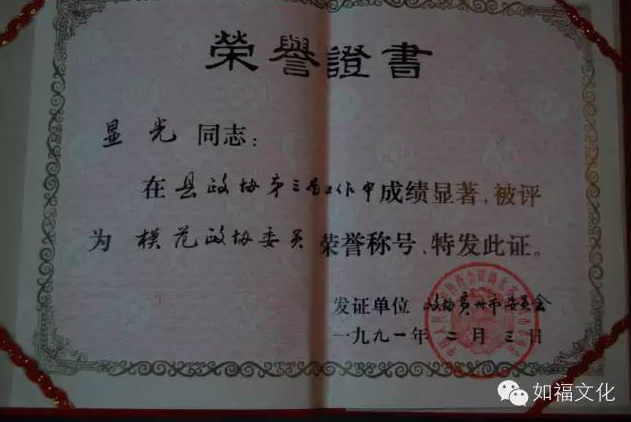 榮譽證書
显光同志：
在县政协第三届工作中成绩显著，被评
为模范政协委员荣誉称号、特发此证。
发证单位 政协黄州市委员会
一九九一年二月三日
如福文化